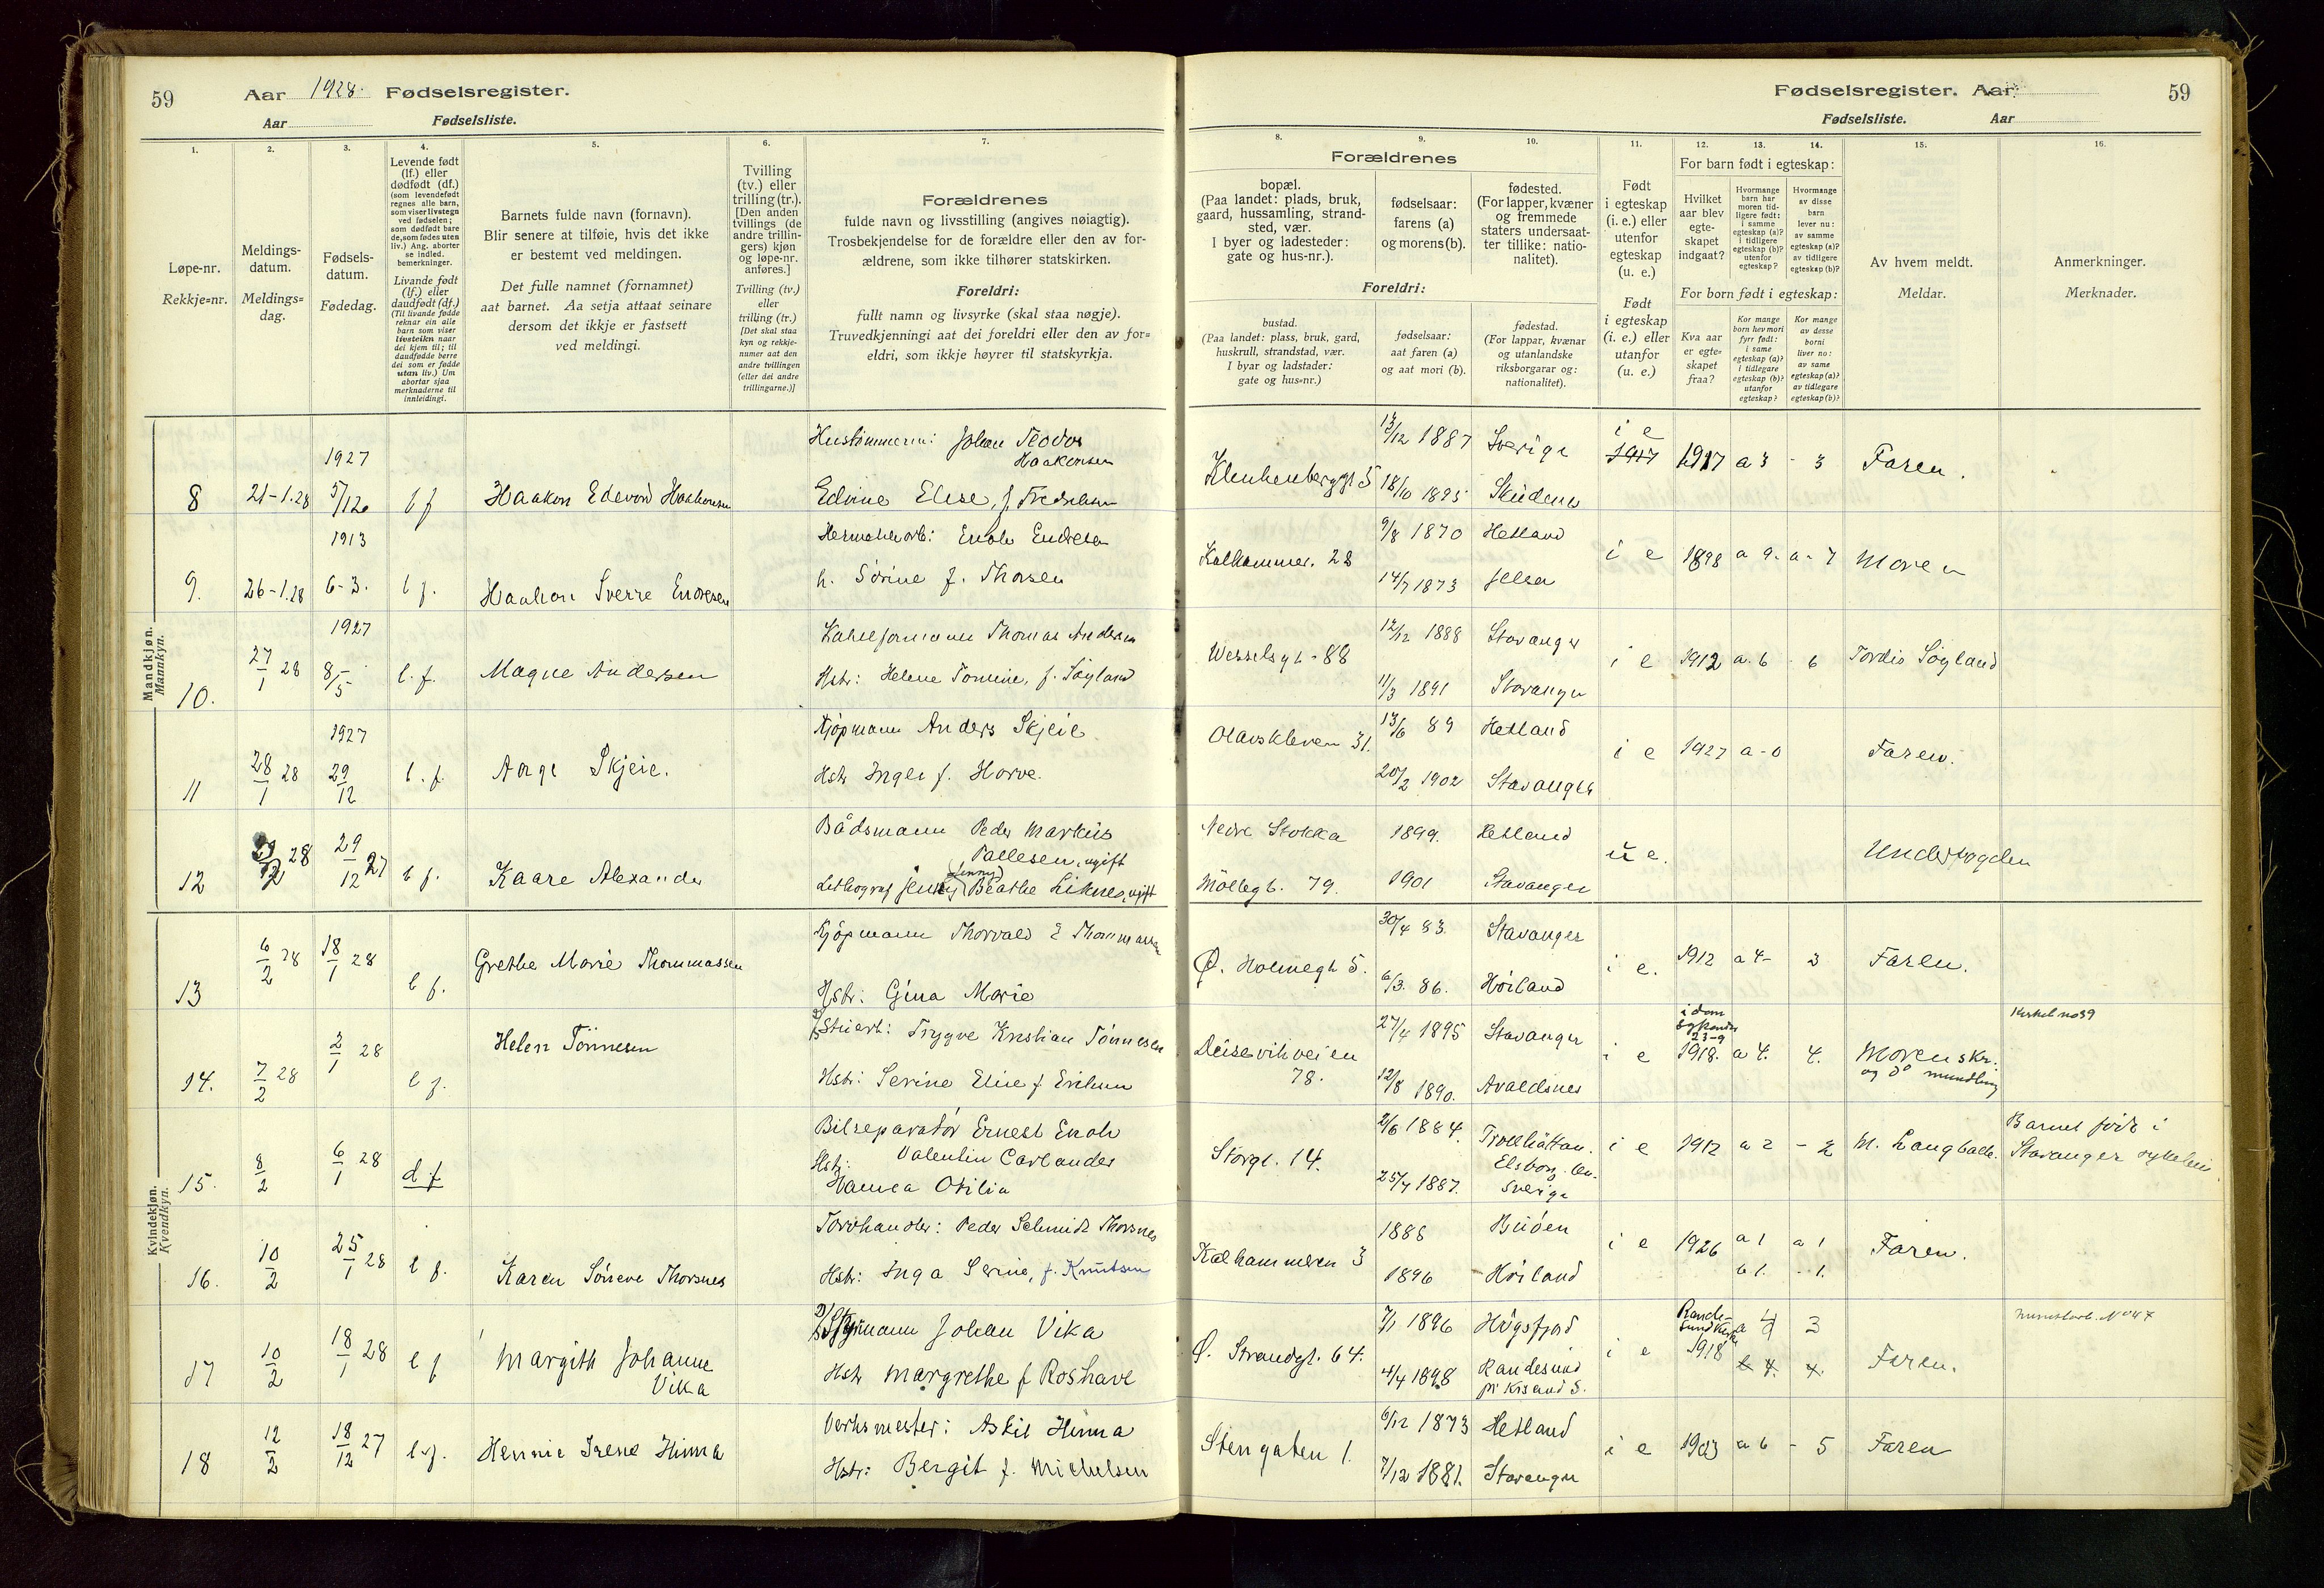 59
Aar 1928. Fødselsregister.
Aar
Fødselsliste.
Fødselsregister. Aar
59
Fødselsliste.
Aar
1.
Løpe-nr.
Rekkje=nr.
2.
Meldings-
datum.
Meldings=
dag.
3.
Fødsels-
datum.
Fødedag.
4.
Levende født
(lf.) eller
dødfødt (df.)
(som levendefødt
regnes alle barn,
som viser livstegn
ved fødselen;
som dødfødt bare
de, som fødes uten
liv.) Ang. aborter
se indled.
bemerkninger.
Livande født
(lf.) eller
daudfødt (df.)
(Til livande fødde
reknar ein alle
barn som viser
livsteikn naar
dei kjem til; til
daudfødde berre
dei som er fødde
utan liv.) Um
abortar sjaa
merknaderne til
innleidingi.
5.
Barnets fulde navn (fornavn).
Blir senere at tilføie, hvis det ikke
er bestemt ved meldingen.
Det fulle namnet (fornamnet)
aat barnet. Aa setja attaat seinare
dersom det ikkje er fastsett
ved meldingi.
6.
Tvilling
(tv.) eller
trilling (tr.).
[Den anden
tvillings (de
andre trillin-
gers) kjøn
og løpe-nr.
anføres.]
Tvilling (tv.)
eller
trilling (tr.)
[Det skal staa
kyn og rekkje-
numer aat den
andre tvillingen
(eller dei andre
trillingarne.)]
7.
Forældrenes
fulde navn og livsstilling (angives nøiagtig).
Trosbekjendelse for de forældre eller den av for-
ældrene, som ikke tilhører statskirken.
Foreldri:
fullt namn og livsyrke (skal staa nøgje).
Truvedkjenningi aat dei foreldri eller den av for=
eldri, som ikkje høyrer til statskyrkja.
8.
Forældrenes
bopæl.
(Paa landet: plads, bruk,
gaard, hussamling, strand-
sted, vær.
I byer og ladesteder:
gate og hus-nr.).
Foreldri:
bustad.
(Paa landet: plass, bruk, gard,
huskrull, strandstad, vær.
I byar og ladstader:
gate og hus=nr.)
9.
fødselsaar:
farens (a)
og morens (b).
fødselsaar:
aat faren (a)
og aat mori (b).
10.
fødested.
(For lapper, kvæner
og fremmede
staters undersaat-
ter tillike: natio-
nalitet).
fødestad.
(For lappar, kvænar
og utanlandske
riksborgarar og:
nationalitet).
11.
Født
i egteskap
(i. e.) eller
utenfor
egteskap
(u. e.)
Født
i egteskap
(i. e.) eller
utanfor
(u. e.)
12.
For barn født i egteskap:
Hvilket
aar blev
egte-
skapet
indgaat?
For born født i egteskap:
Kva aar
er egte-
skapet
fraa?
13.
Hvormange
barn har
moren tid-
ligere født:
i samme
egteskap (a)?
i tidligere
egteskap (b)?
utenfor
egteskap?
Kor mange
born hev mori
fyrr født:
i same
egteskap (a)?
i tidlegare
egteskap (b)?
utanfor
egteskap?
14.
Hvormange
av disse
barn
lever nu:
av samme
egteskap (a)?
av tidligere
egteskap (b)?
Kor mange
av desse
borni
liver no:
av same
egteskap (a)?
av tidlegare
egteskap (b)?
15.
Av hvem meldt.
Meldar.
16.
Anmerkninger.
Merknader.
Mandkjøn.
Mannkyn.
8
21-1.28
1927
5/12.
l f
Haakon Edevard Haakonsen
Hustømmerm: Johan Teodor
Haakonsen
Edvine Elise, f. Fredriksen
Klinkenberggt 5
13/12 1887
18/10 1895
Sverige
Skudenes
i e
1917
1917
a 3 - 3
Faren.
9.
26-1.28
1913
6-3.
l f.
Haakon Sverre Endresen
Hermetikarb: Enok Endresen
h. Sørine f. Thorsen
Kalhammer. 28
9/8 1870
14/7 1873
Hetland
Jelsa
i e
1898
a 9. a - 7
Moren
10.
27/1 28
1927
8/5
l. f.
Magne Andersen
Thomas Andersen
Hstr: Helene Tomine, f. Søyland
Wesselsgt - 88
12/12 1888
11/3 1891
Stavanger
Stavanger
i e
1912
a. 6 - 6
Tordis Søyland
11
28/1 28
1927
29/12
l. f.
Aage Skjeie.
Kjøpmann Anders Skjeie
Hstr Inger f. Horve.
Olavskleven 31.
13/6 89
20/2 1902
Hetland
Stavanger
i e
1927
a - 0
Faren.
12
28
29/12 27
l f.
Kaare Alexander
Bådsmann Peder Markus
Pallesen, ugift
(Jenny)
Lithograf Jenny Beathe Liknes, ugift
Nedre Stokka
Møllegt. 79.
1899.
1901
Hetland
Stavanger
u e.
Underfogden
Kvindekjøn.
Kvendkyn.
13
6/2 28
18/1 28
l f.
Grethe Marie Thommassen
Kjøpmann Thorvald E Thommassen
Hstr: Gina Marie
Ø. Holmegt 5.
30/4 83.
6/3. 86.
Stavanger
Høiland
i e.
1912
a 4 - 3
Faren.
14.
7/2 28
2/1 28
l f.
Helen Tønnesen
Stuert: Trygve Kristian Tønnesen
Hstr: Serine Elise f Eriksen
Deisevikveien
78.
27/4 1895
12/8 1890.
Stavanger
Avaldsnes
i e
23-9
1918.
a 4. 4.
Moren skr.
og do mundtlig
15.
8/2
6/1 28
d f
Bilreparatør Ernest Enok
Valentin Carlander
Hstr:
Otilia
Storgt. 14.
2/6 1884.
25/7 1887.
Trollhättan.
Elsborg len.
Sverige
i e
1912
a 2 - 2
M. Langballe.
Barnet født i
Stavanger sykehus
16.
10/2
25/1 28
l f.
Karen Sørine Thorsnes
Peder Schmidt Thorsnes
Hstr: Inga Serine, f. Knutsen
Kalhammeren 3
1888
1896
Høiland
i e
1926
a 1 a 1
b 1. - 1.
Faren.
17
10/2
18/1 28
l f
Margith Johanne
Vika
Johan Vika
Hstr Margrethe f Roshave
Ø. Strandgt. 64.
7/1 1896
4/4 1898
Høgsfjord
Randesund
pr Krsand S.
i e
1918
a 4 3
Faren.
18
12/2
18/12 27
l. f.
Hennie Irene Hinna
Verksmester: Askil Hinna
Hstr: Bergit f. Michelsen
Stengaten 1.
6/12 1873
7/12 1881.
Hetland
Stavanger
i e
1903
a 6 - 5
Faren